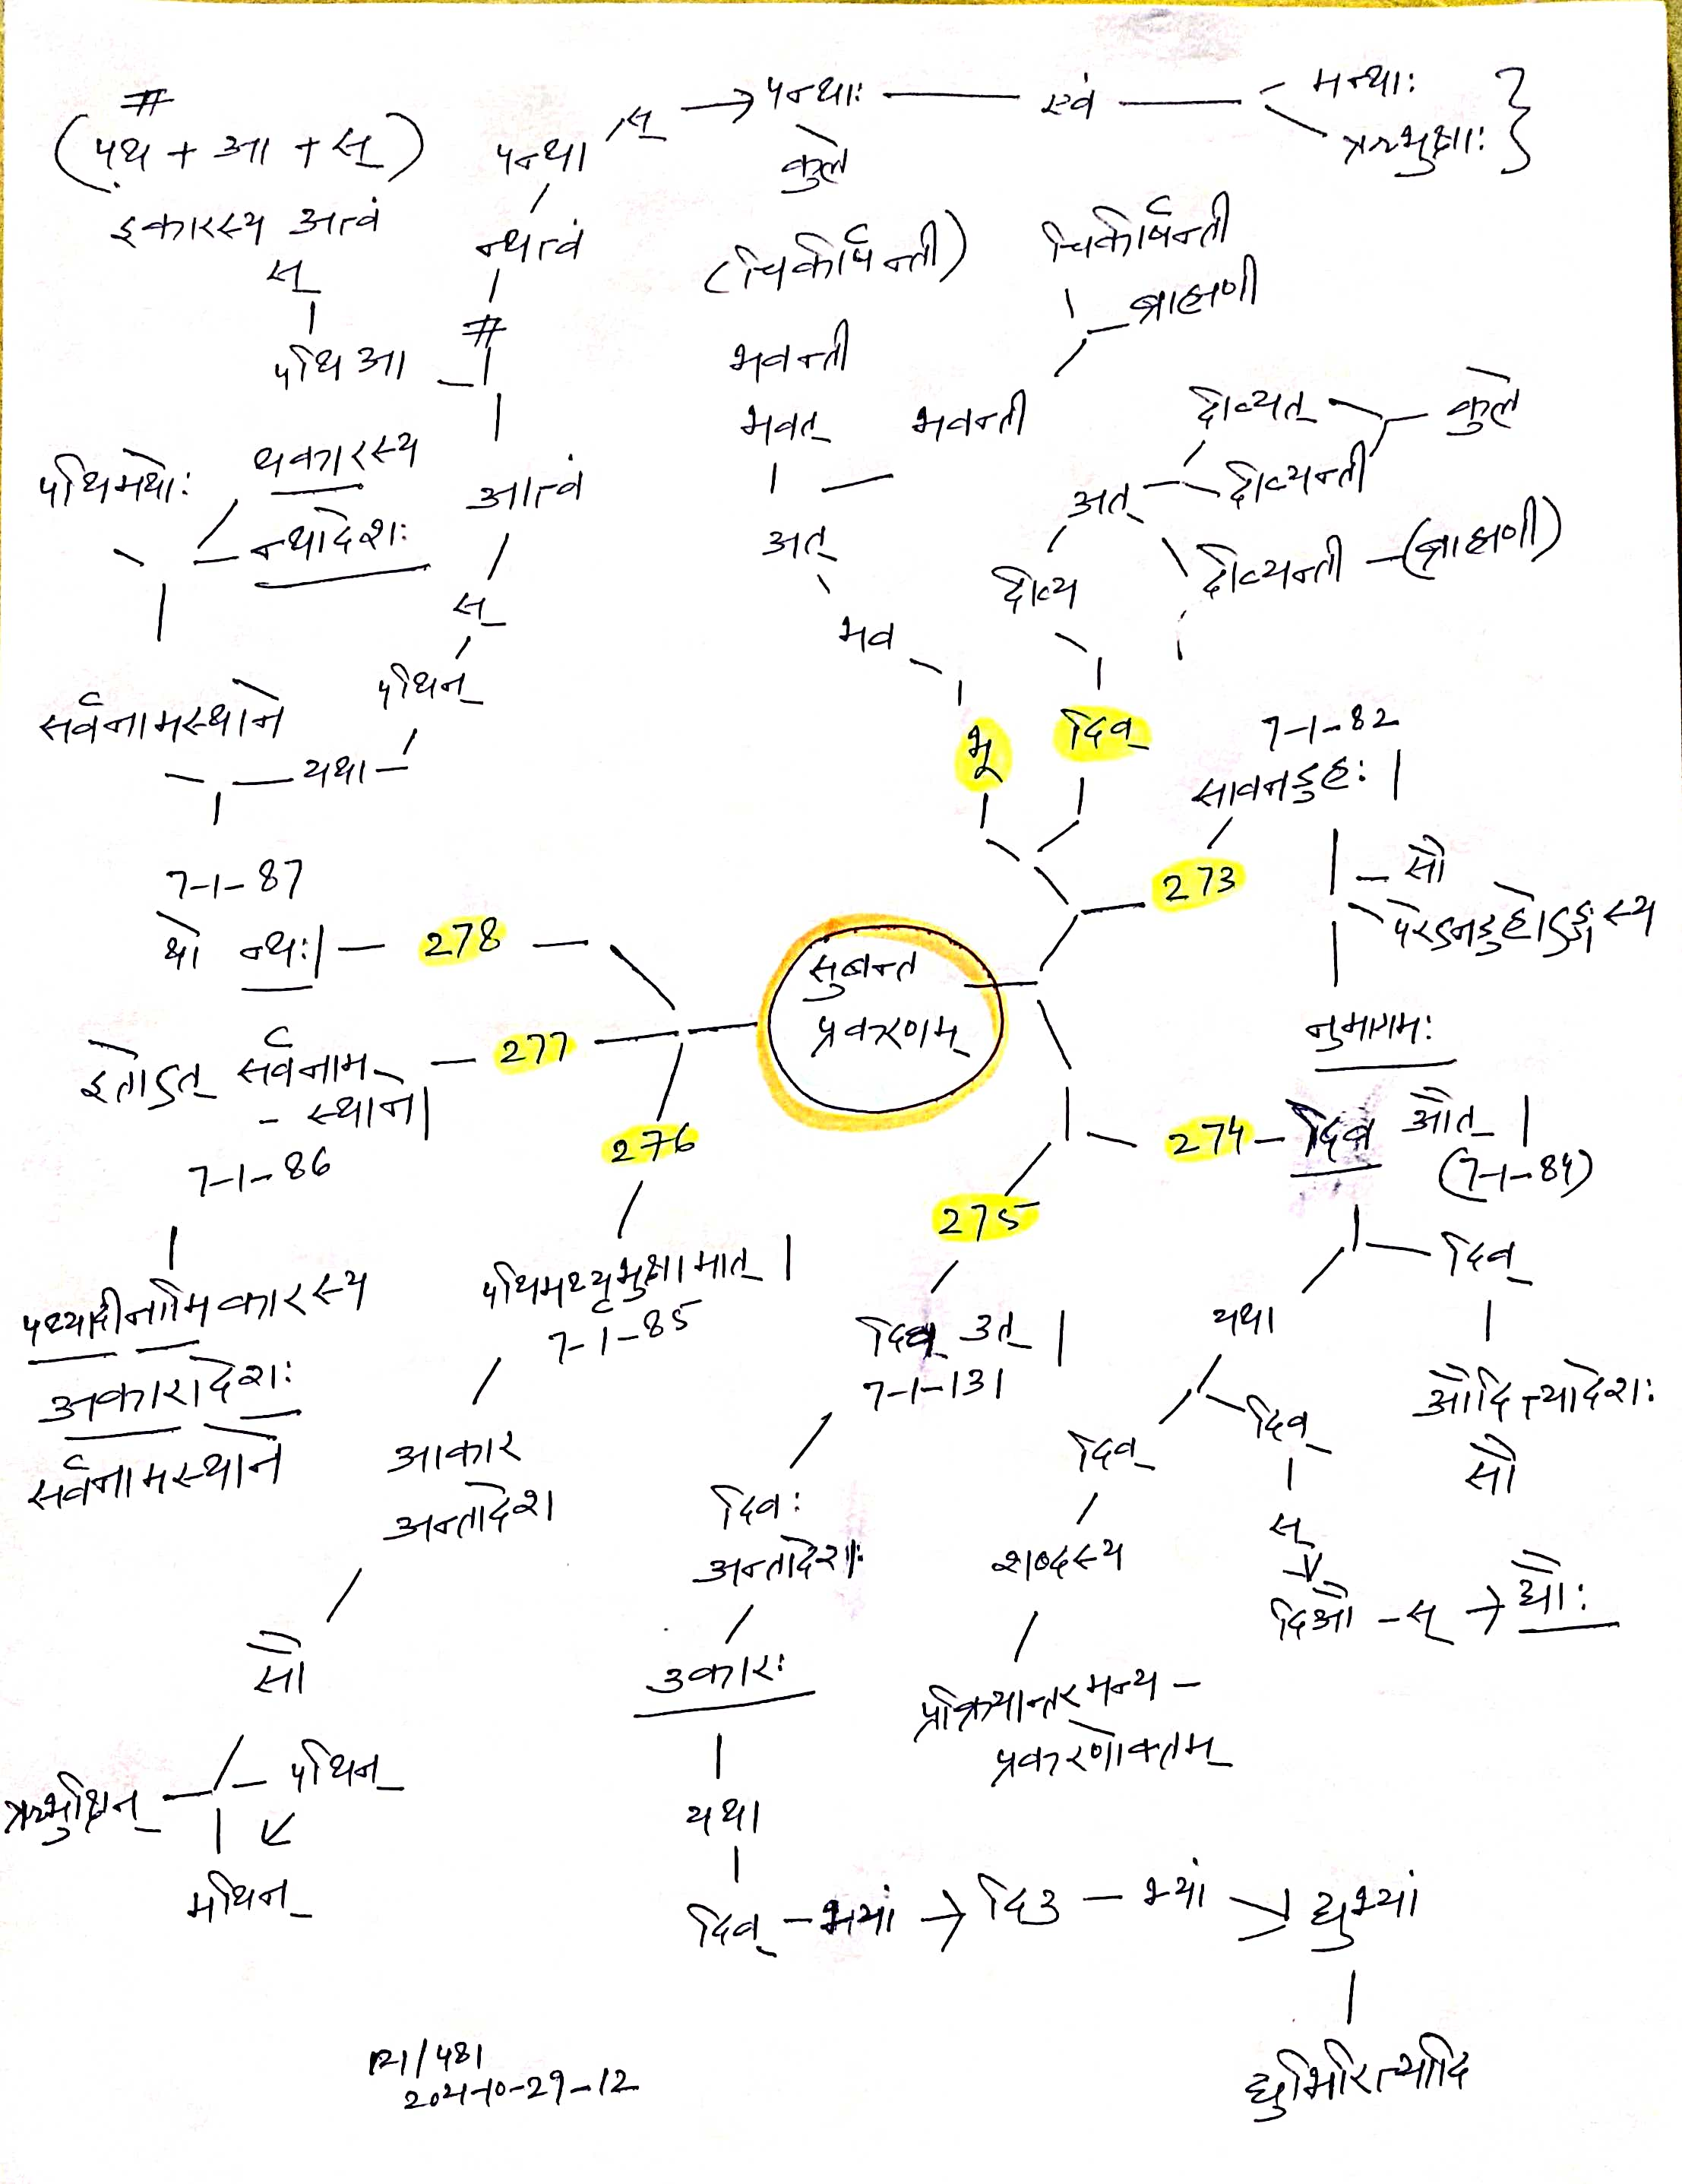 #
(पथ + आ + स्)
इकारस्य अत्वं
स्
पथि आ
पन्था
स् → पन्थाः — एवं — मन्थाः
ऋभुक्षाः
न्थत्वं
#
आत्वं
स्
पथिन्
यथा
पथिमथोः
थकारस्य
न्थादेशः
सर्वनामस्थाने
7-1-87
थो न्थः। — 278
इतोऽत् सर्वनाम-
- स्थाने।
7-1-86
277
पथ्यादीनामिकारस्य
अकारादेशः
सर्वनामस्थाने
276
पथिमथ्यृभुक्षामात्।
7-1-85
आकार
अन्तादेश
सौ
पथिन्
ऋभुक्षिन्
मथिन्
सुबन्त
प्रकरणम्
कुले
(चिकीर्षन्ती)
भवन्ती
भवत्
भवन्ती
अत्
भव
भू
चिकीर्षन्ती
ब्राह्मणी
दीव्यत्
कुले
दीव्यन्ती
अत्
दीव्यन्ती - (ब्राह्मणी)
दीव्य
दिव्
273
7-1-82
सावनडुहः।
सौ
नुमागमः
274 - दिव औत्।
(7-1-84)
दिव्
औदित्यादेशः
सौ
यथा
दिव्
शब्दस्य
प्रक्रियान्तरमन्य-
प्रकरणोक्तम्
दिव्
स्
दिऔ - स् → द्यौः
275
दिव उत्।
7-1-131
दिवः
अन्तादेशः
उकारः
यथा
दिव् - भ्यां → दिउ - भ्यां → द्युभ्यां
द्युभिरित्यादि